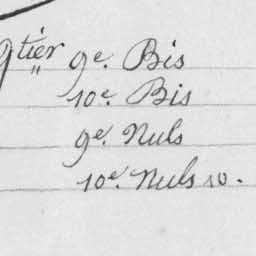 qtier 9e. Bis
" 10e. Bis
9e. Nuls
10e. Nuls 10.